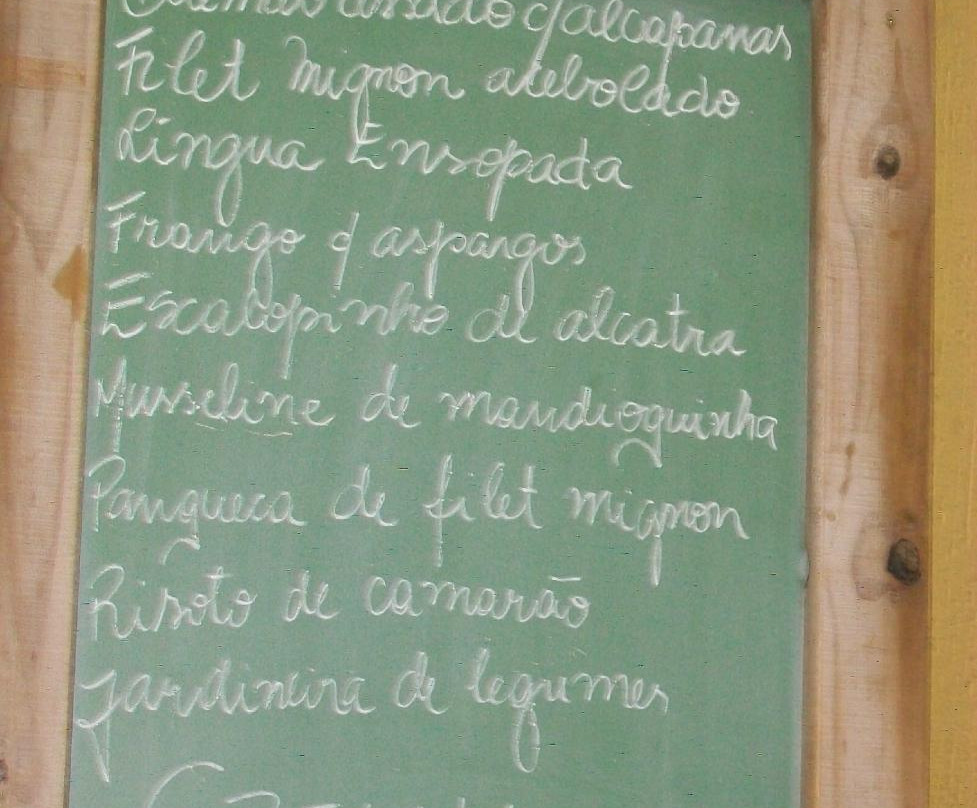 c/ alcaparras
Filet Mignon acebolado
Lingua Ensopada
Frango c/ aspargos
Escalopinho de alcatra
Musseline de mandioquinha
Panqueca de filet mignon
Risoto de camarão
Jardineira de legumes